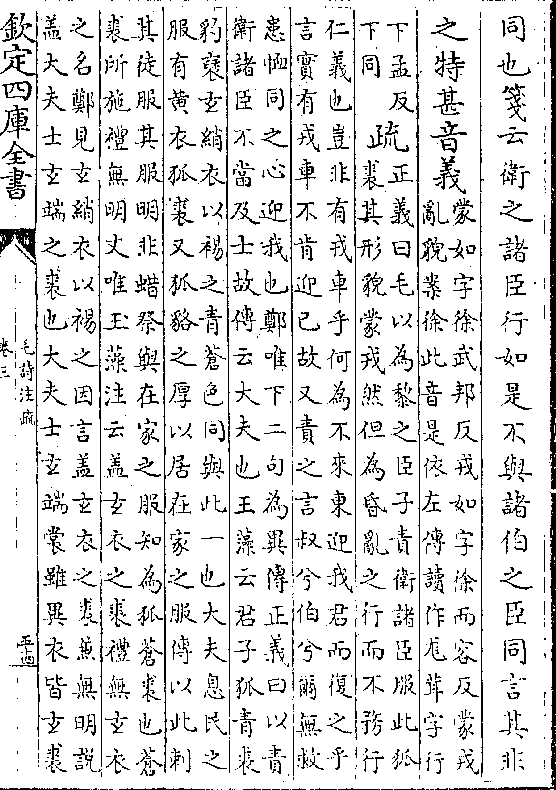 同也箋云衛之諸臣行如是不與諸伯之臣同言其非
之特甚音義
蒙如字徐武邦反戎如字徐而容反蒙戎
亂貌案徐此音是依左傳讀作尨茸字行
下孟反
下同
疏
正義曰毛以為黎之臣子責衛諸臣服此狐
裘其形貌蒙戎然但為昏亂之行而不務行
仁義也豈非有戎車乎何為不來東迎我君而復之乎
言實有戎車不肯迎已故又責之言叔兮伯兮爾無救
患恤同之心迎我也鄭唯下二句為異傳正義曰以責
衛諸臣不當及士故傳云大夫也玉藻云君子狐青裘
豹褎玄綃衣以裼之青蒼色同與此一也大夫息民之
服有黄衣狐裘又狐貉之厚以居在家之服傳以此刺
其徒服其服明非蜡祭與在家之服知為狐蒼裘也蒼
裘所施禮無明文唯玉藻注云盖玄衣之裘禮無玄衣
之名鄭見玄綃衣以裼之因言盖玄衣之裘兼無明說
盖大夫士玄端之裘也大夫士玄端裳雖異衣皆玄裘
欽定四庫全書
毛詩注疏
卷三
五十四